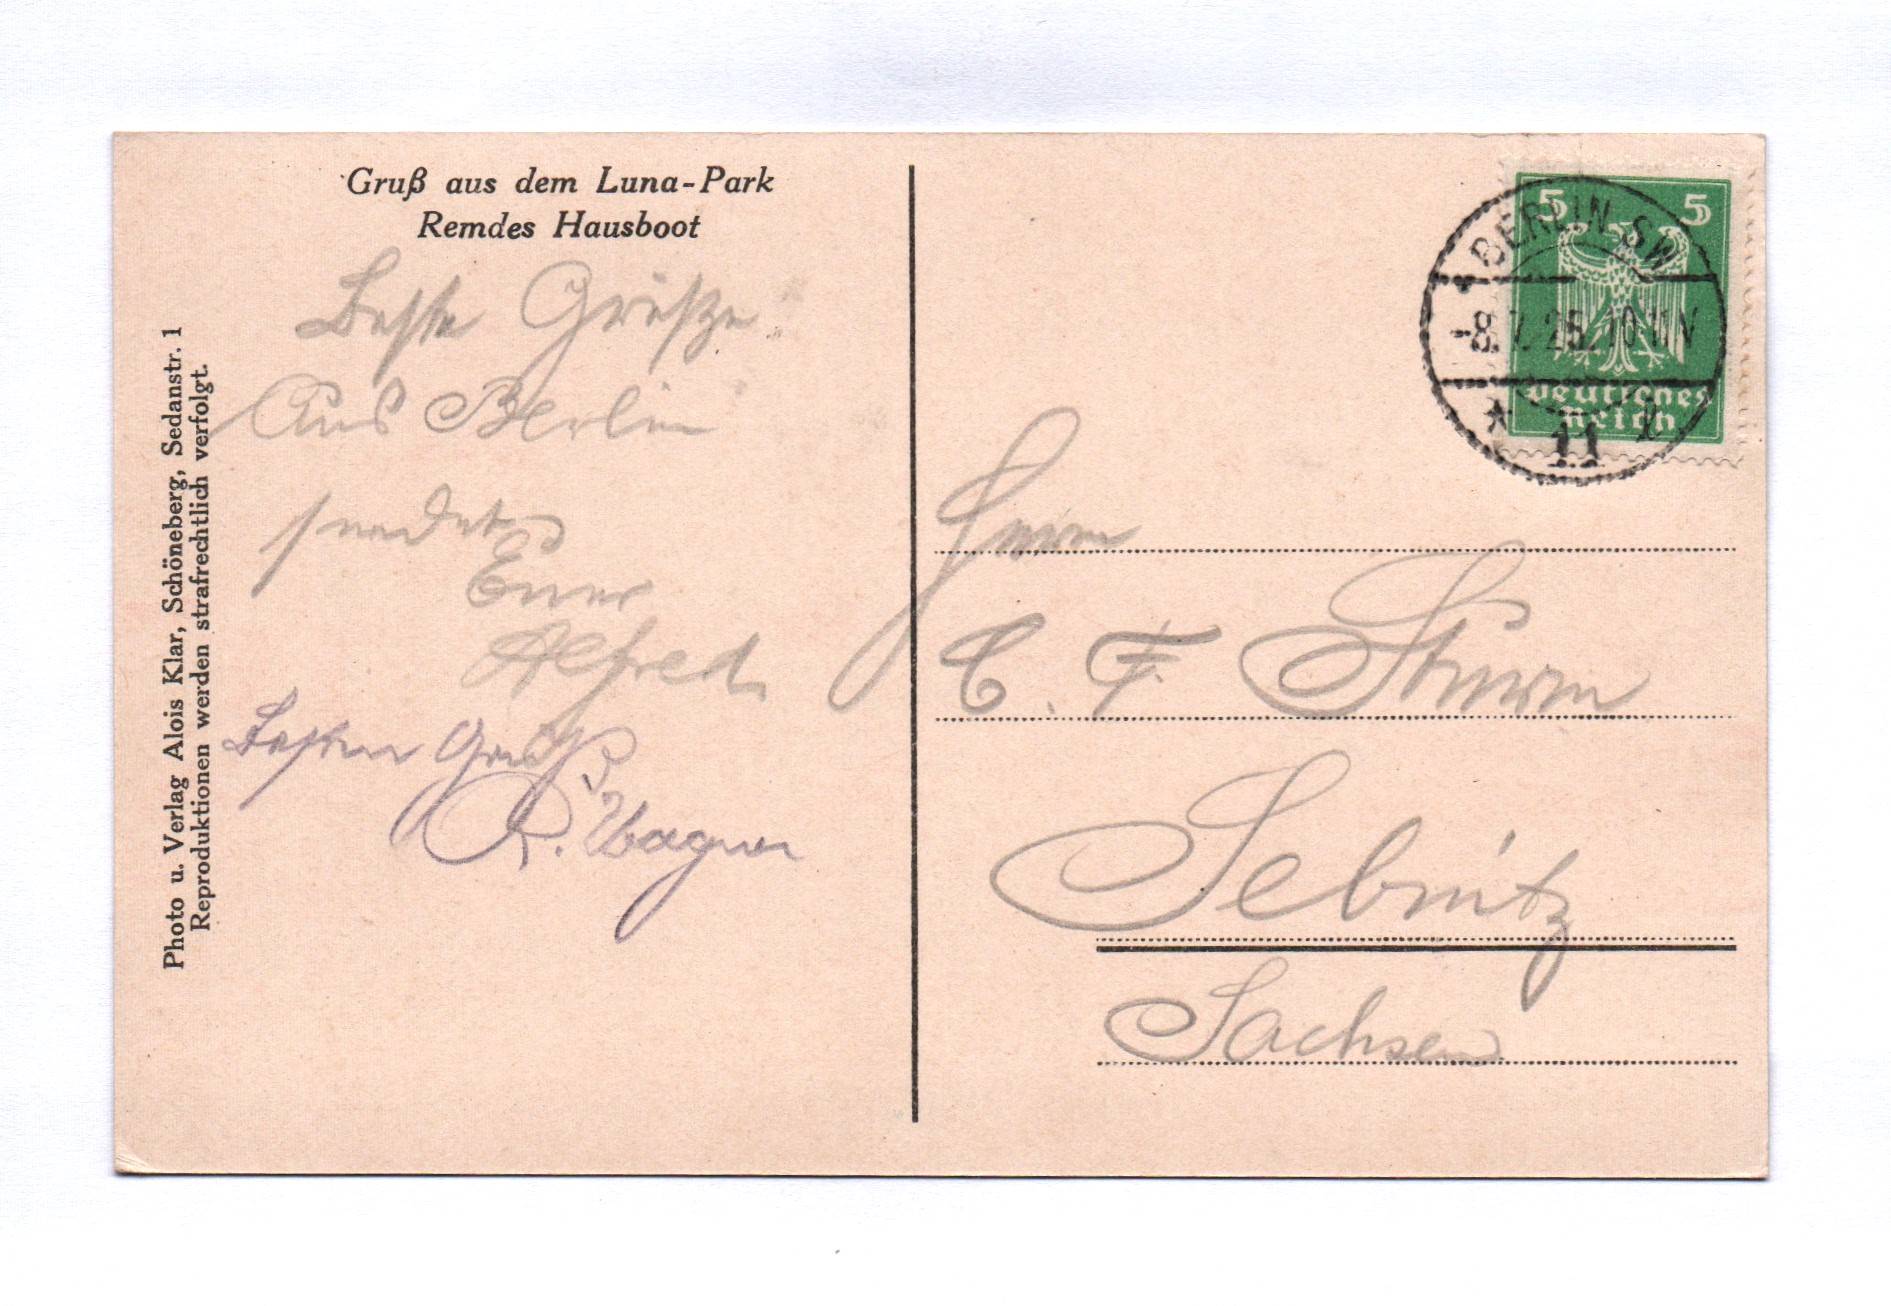 Gruß aus dem Luna-Park
Remdes Hausboot
Beste Grüße
Aus Berlin
sendet
Euer
Alfred
Besten Gruß
R. Wagner
Photo u. Verlag Alois Klar, Schöneberg, Sedanstr. 1
Reproduktionen werden strafrechtlich verfolgt.
5 5
Deutsches
Reich
BERLIN SW
-8.7.25.10-11V
* 11
Herrn
C. F. Sturm
Sebnitz
Sachsen